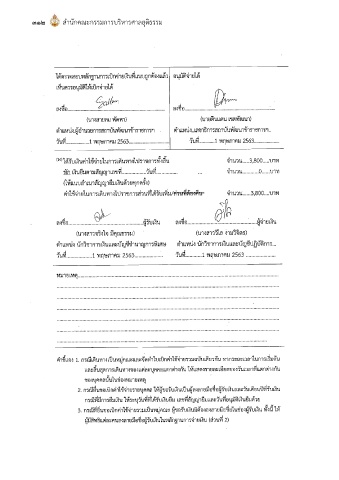 ๓๑๒ สำนักคณะกรรมการบริหารศาลยุติธรรม
ได้ตรวจสอบหลักฐานการเบิกจ่ายเงินที่แนบถูกต้องแล้ว อนุมัติจ่ายได้
เห็นควรอนุมัติให้เบิกจ่ายได้
ลงชื่อ ลงชื่อ
ตำแหน่งผู้อำนวยการสถาบันพัฒนาข้าราชการฯ ตำแหน่งเลขาธิการสถาบันพัฒนาข้าราชการฯ
วันที่ 1 พฤษภาคม 2563 วันที่ 1 พฤษภาคม 2563
ได้รับเงินค่าใช้จ่ายในการเดินทางไปราชการทั้งสิ้น จำนวน 3,800 บาท
หัก เงินยืมตามสัญญาเลขที่ วันที่ จำนวน 0 บาท
(ให้แนบสำเนาสัญญายืมเงินด้วยทุกครั้ง)
ค่าใช้จ่ายในการเดินทางไปราชการส่วนที่ได้รับเพิ่ม/ จำนวน 3,800 บาท
ลงชื่อ ผู้รับเงิน ลงชื่อ ผู้จ่ายเงิน
ตำแหน่ง นักวิชาการเงินและบัญชีชำนาญการพิเศษ ตำแหน่ง นักวิชาการเงินและบัญชีปฏิบัติการ
วันที่ 1 พฤษภาคม 2563 วันที่ 1 พฤษภาคม 2563
หมายเหตุ
คำชี้แจง 1. กรณีเดินทางเป็นหมู่คณะและจัดทำใบเบิกค่าใช้จ่ายรวมฉบับเดียวกัน หากระยะเวลาในการเริ่มต้น
และสิ้นสุดการเดินทางของแต่ละบุคคลแตกต่างกัน ให้แสดงรายละเอียดของวันเวลาที่แตกต่างกัน
ของบุคคลนั้นในช่องหมายเหตุ
2. กรณียื่นขอเบิกค่าใช้จ่ายรายบุคคล ให้ผู้ขอรับเงินเป็นผู้ลงลายมือชื่อผู้รับเงินและวันเดือนปีที่รับเงิน
กรณีที่มีการยืมเงิน ให้ระบุวันที่ที่ได้รับเงินยืม เลขที่สัญญายืมและวันที่อนุมัติเงินยืมด้วย
3. กรณีที่ยื่นขอเบิกค่าใช้จ่ายรวมเป็นหมู่คณะ ผู้ขอรับเงินมิต้องลงลายมือชื่อในช่องผู้รับเงิน ทั้งนี้ ให้
ผู้มีสิทธิแต่ละคนลงลายมือชื่อผู้รับเงินในหลักฐานการจ่ายเงิน (ส่วนที่ 2)